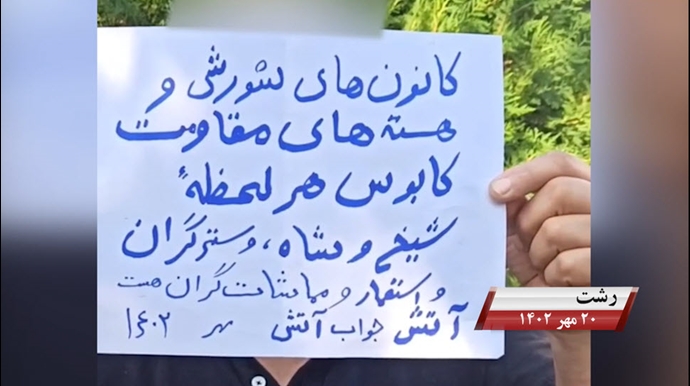 کانون های شورشی و
هسته های مقاومت
کابوس هر لحظهٔ
شیخ و شاه، و ستمگران
و استعمار و مماشات گران هست
آتش جواب آتش مهر ۱۴۰۲
رشت
۲۰ مهر ۱۴۰۲